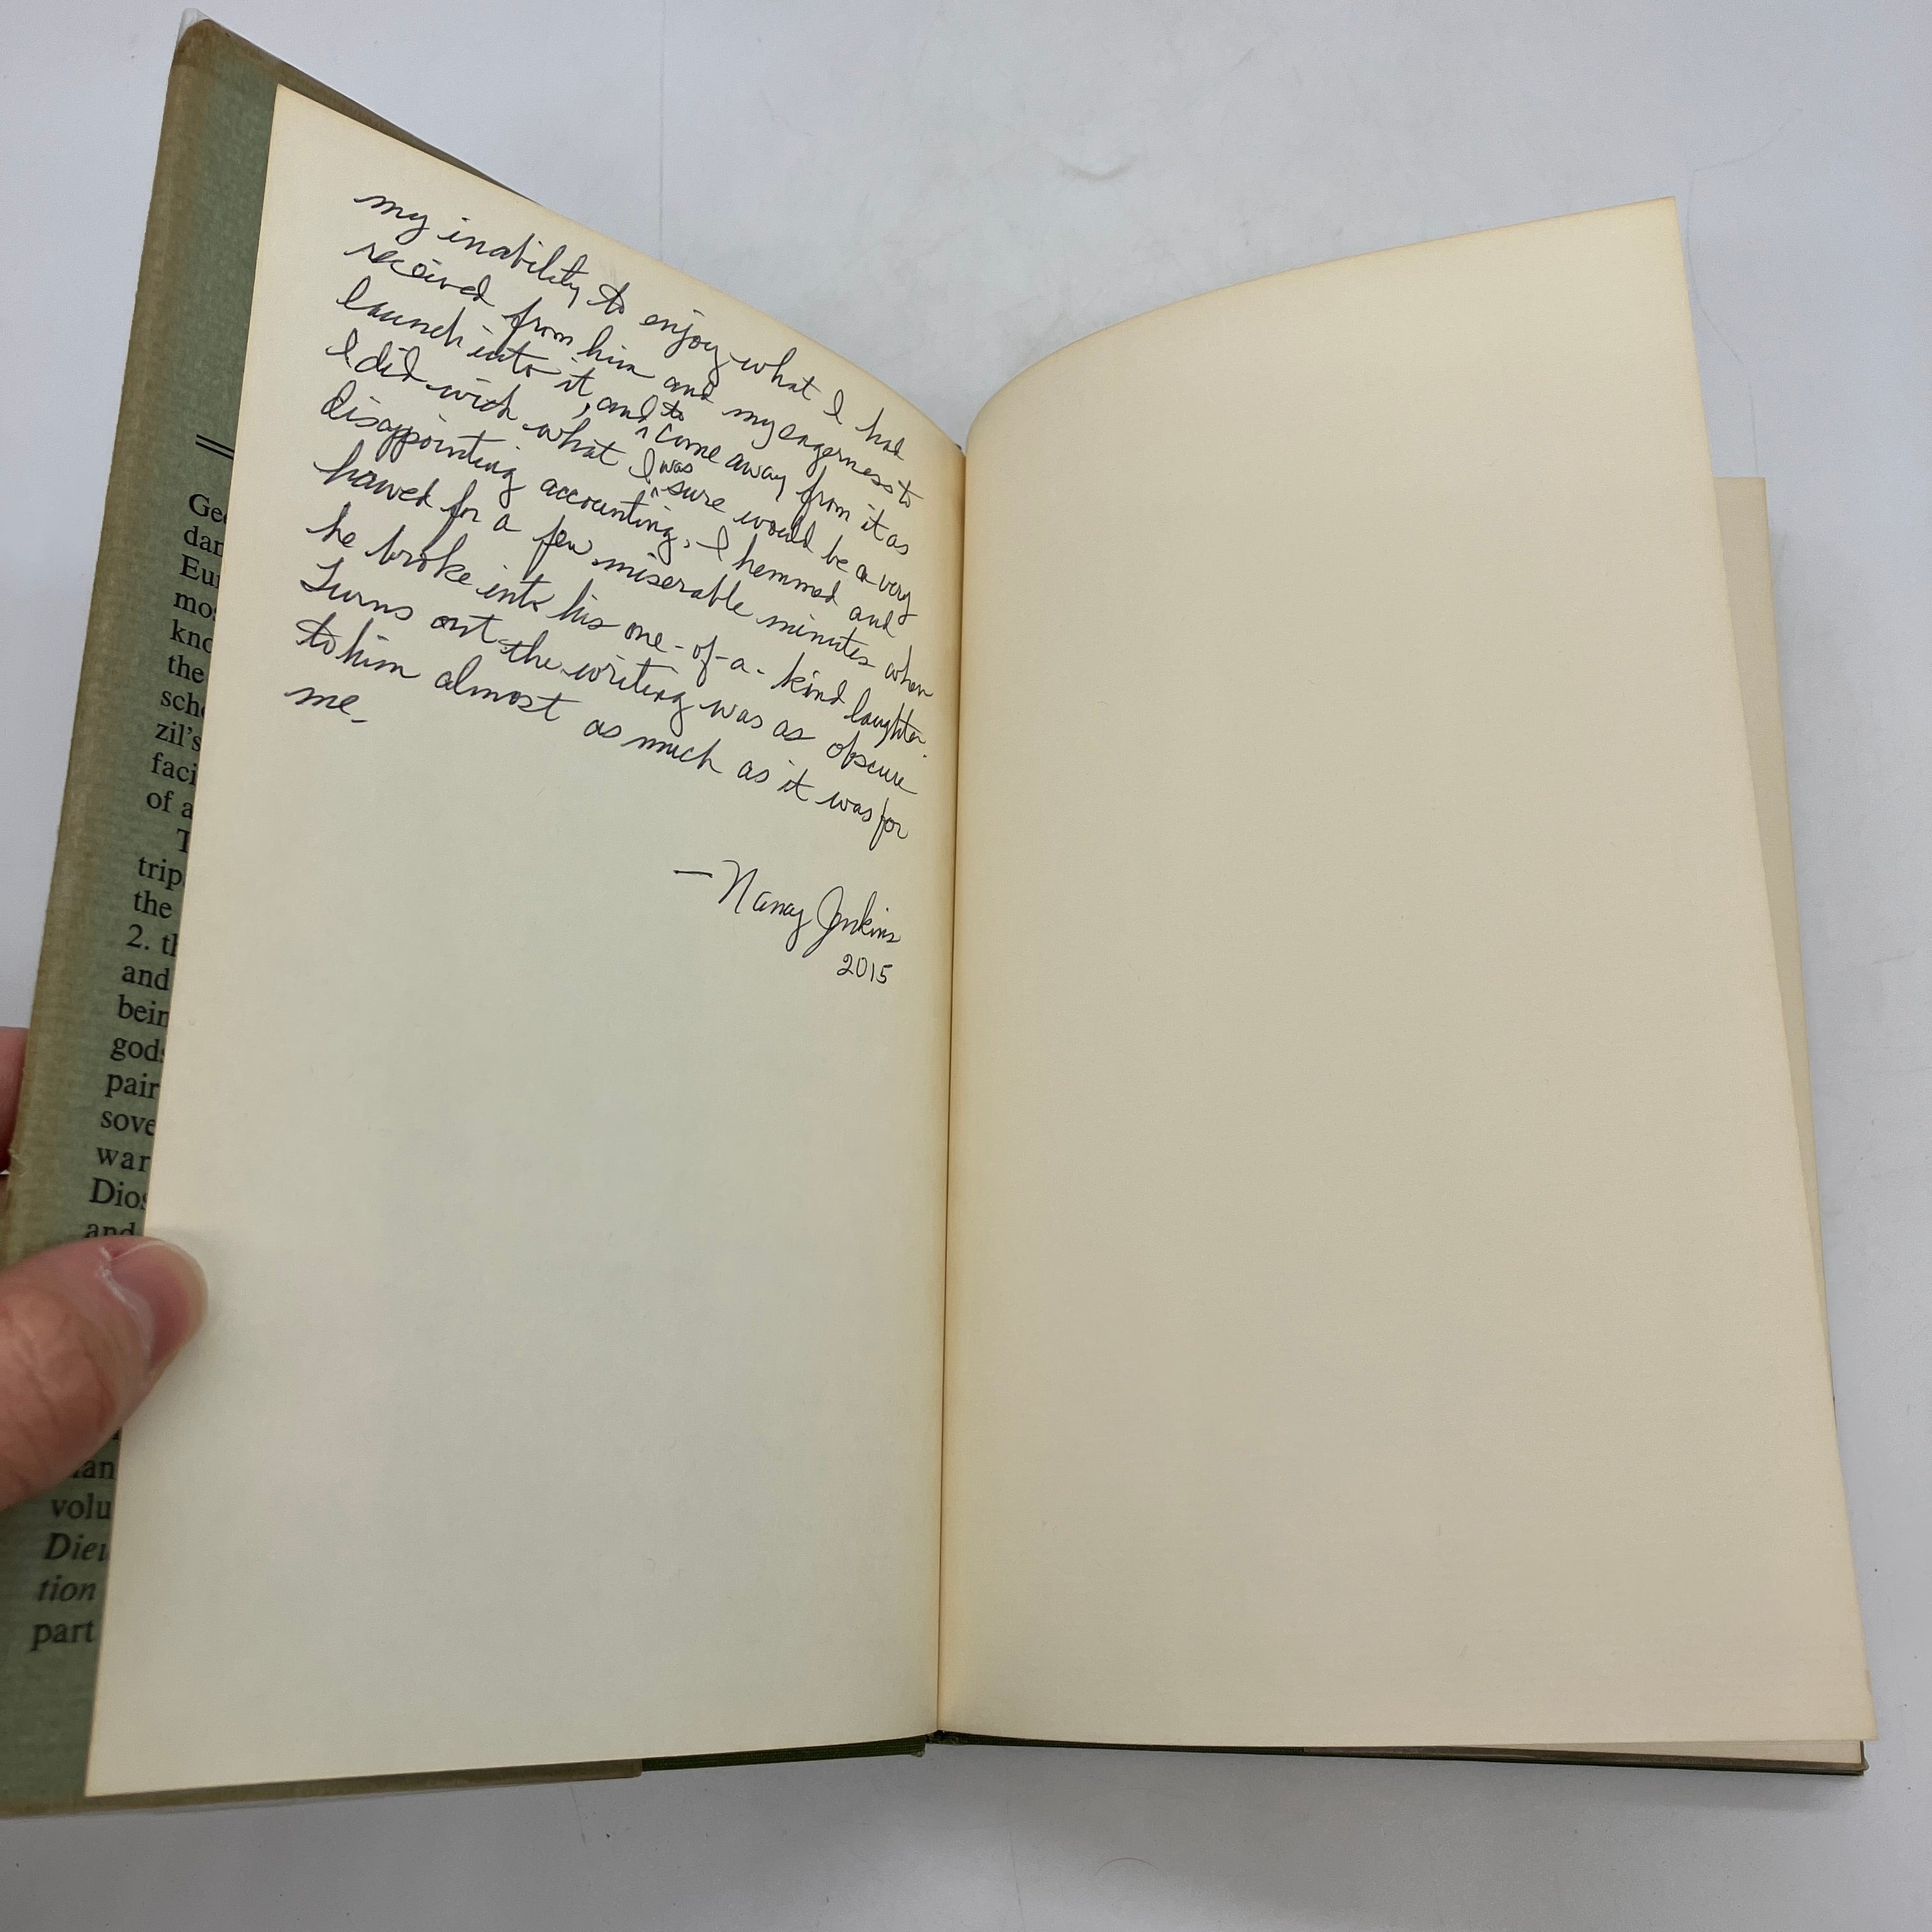 my inability to enjoy what I had
received from him and my eagerness to
launch into it, and to come away from it as
I did with what I was sure would be a very
disappointing accounting, I hemmed and
hawed for a few miserable minutes when
he broke into his one-of-a-kind laughter.
Turns out the writing was as obscure
to him almost as much as it was for
me.
— Nancy Jenkins
2015
Ge
dan
Eur
mos
kno
the
scho
zil's
faci
of a
T
trip
the
2. th
and
bein
gods
pair
sove
war
Dios
and
volu
Dieu
tion
part